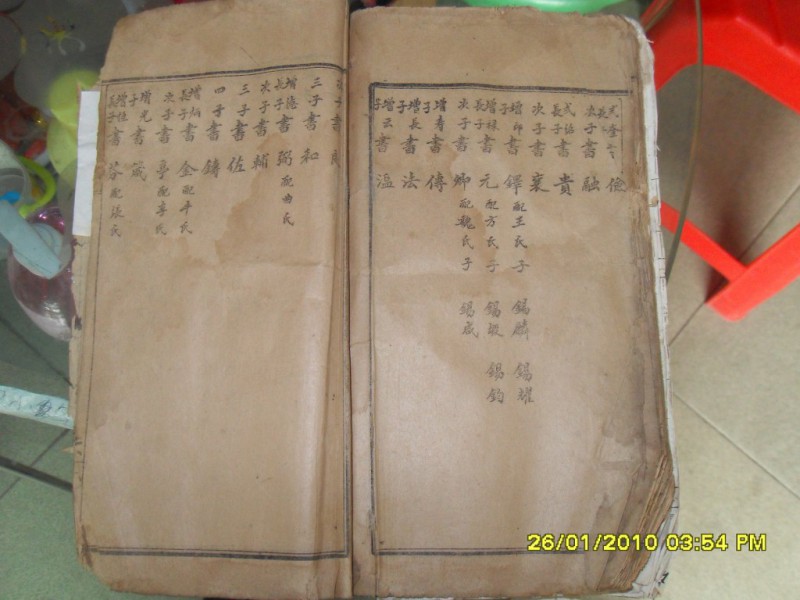 長子 儉
次子書融
長子書貴
次子書襄
增印子書鐸配王氏子 錫麟 錫耀
增祿長子書元配方氏子 錫嘏 錫鈞
次子書卿配魏氏子 錫成
增壽子書傳
增長子書法
增云子書溫
子書
三子書和
增 長子書弼配曲氏
次子書輔
三子書佐
四子書鑄
增灿長子書金配辛氏
次子書 配李氏
增光子書箴
增佳長子書芬配張氏
26/01/2010 03:54 PM